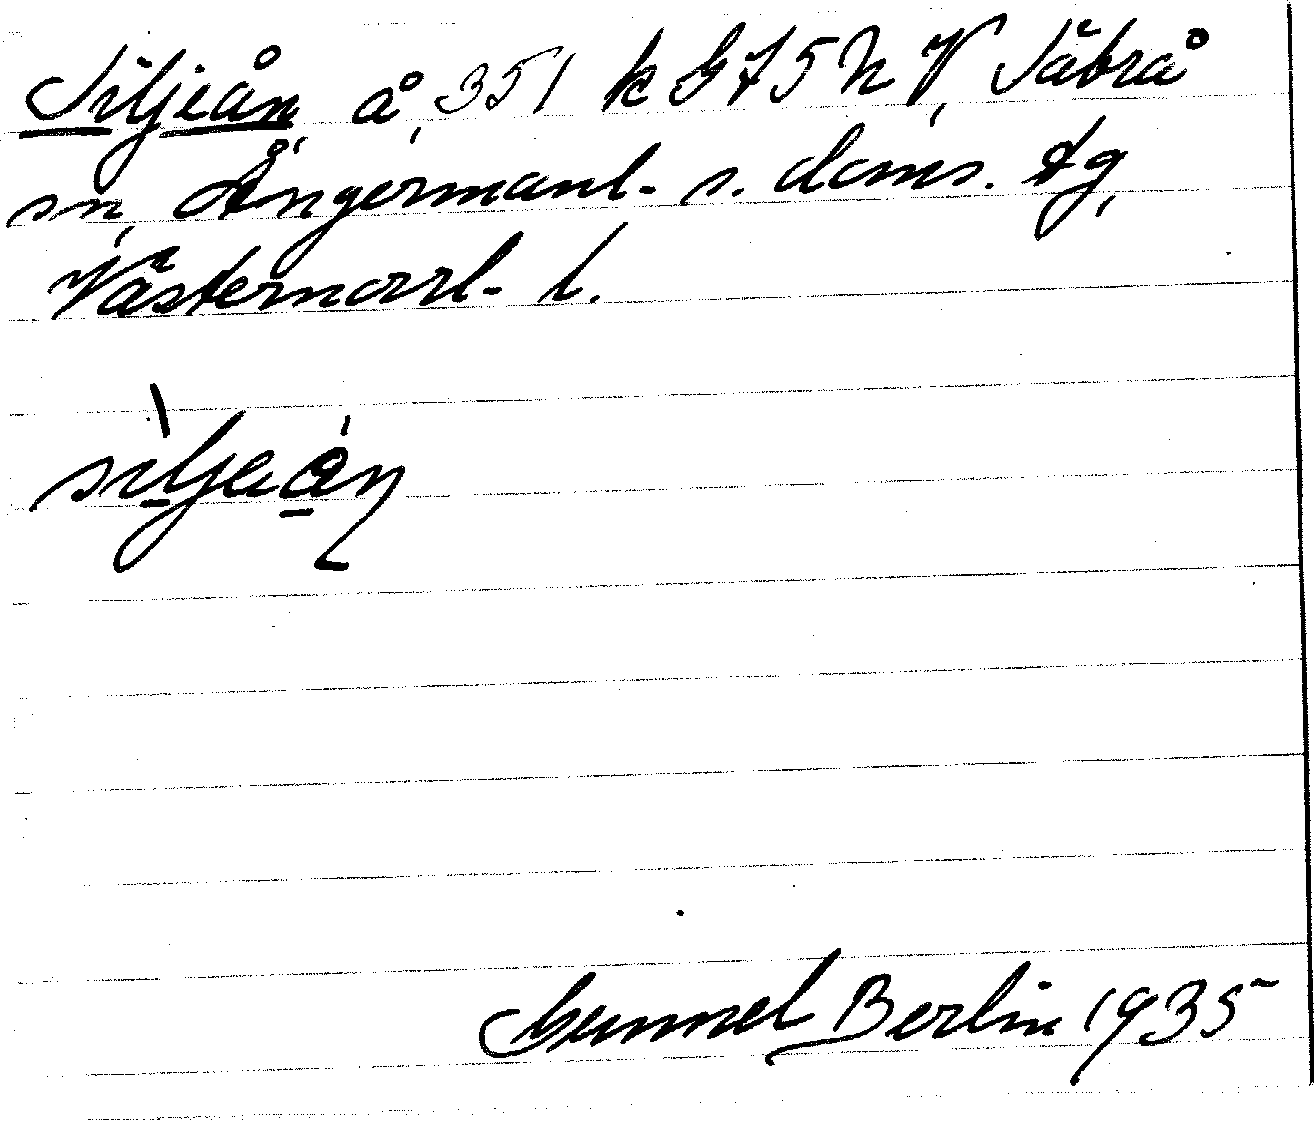 Siljeån, å, 351 k G 75 n V, Säbrå
sn, Ångermanl. s. doms. tg,
Västernorrl. l.
siljeån
Gunnel Berlin 1935